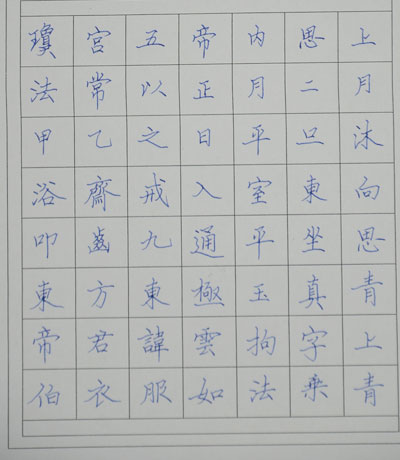 瓊宮五帝內思上
法常以正月二月
甲乙之日平旦沐
浴齋戒入室東向
叩齒九通平坐思
東方東極玉真青
帝君諱雲拘字上
伯衣服如法乘青